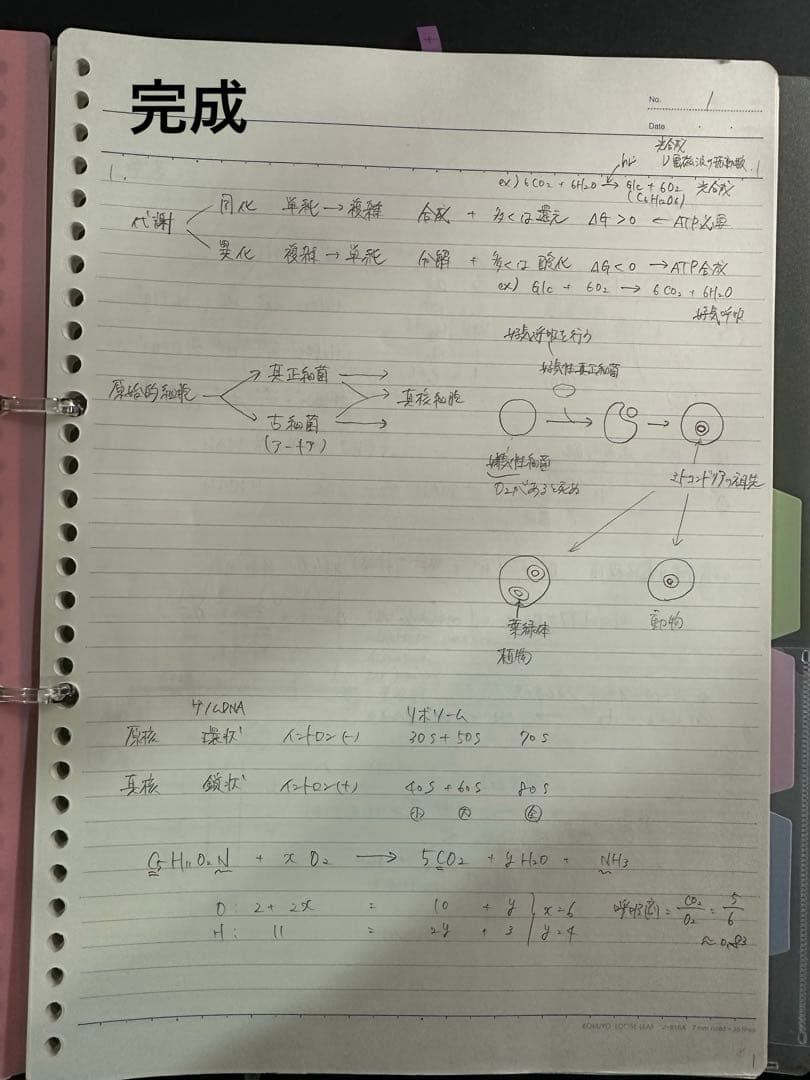 完成
No. 1
Date
光合成
hν ν 電磁波の振動数
1.
ex) 6CO2 + 6H2O → Glc + 6O2 光合成
(C6H12O6)
代謝
同化 単純→複雑 合成 + 多くは還元 ΔG>0 ← ATP必要
異化 複雑→単純 分解 + 多くは酸化 ΔG<0 → ATP合成
ex) Glc + 6O2 → 6CO2 + 6H2O
好気呼吸
好気呼吸を行う
好気性真正細菌
原始的細胞
真正細菌
真核細胞
古細菌
(アーキア)
嫌気性細菌
O2があると死ぬ
ミトコンドリアの祖先
葉緑体
植物
動物
ゲノムDNA リボソーム
原核 環状 イントロン(-) 30S+50S 70S
真核 鎖状 イントロン(+) 40S+60S 80S
小 大 全
C5H11O2N + xO2 → 5CO2 + yH2O + NH3
O: 2+2x = 10 + y x=6 呼吸商 = CO2/O2 = 5/6
H: 11 = 2y + 3 y=4 ≈0.83
KOKUYO LOOSE-LEAF
1